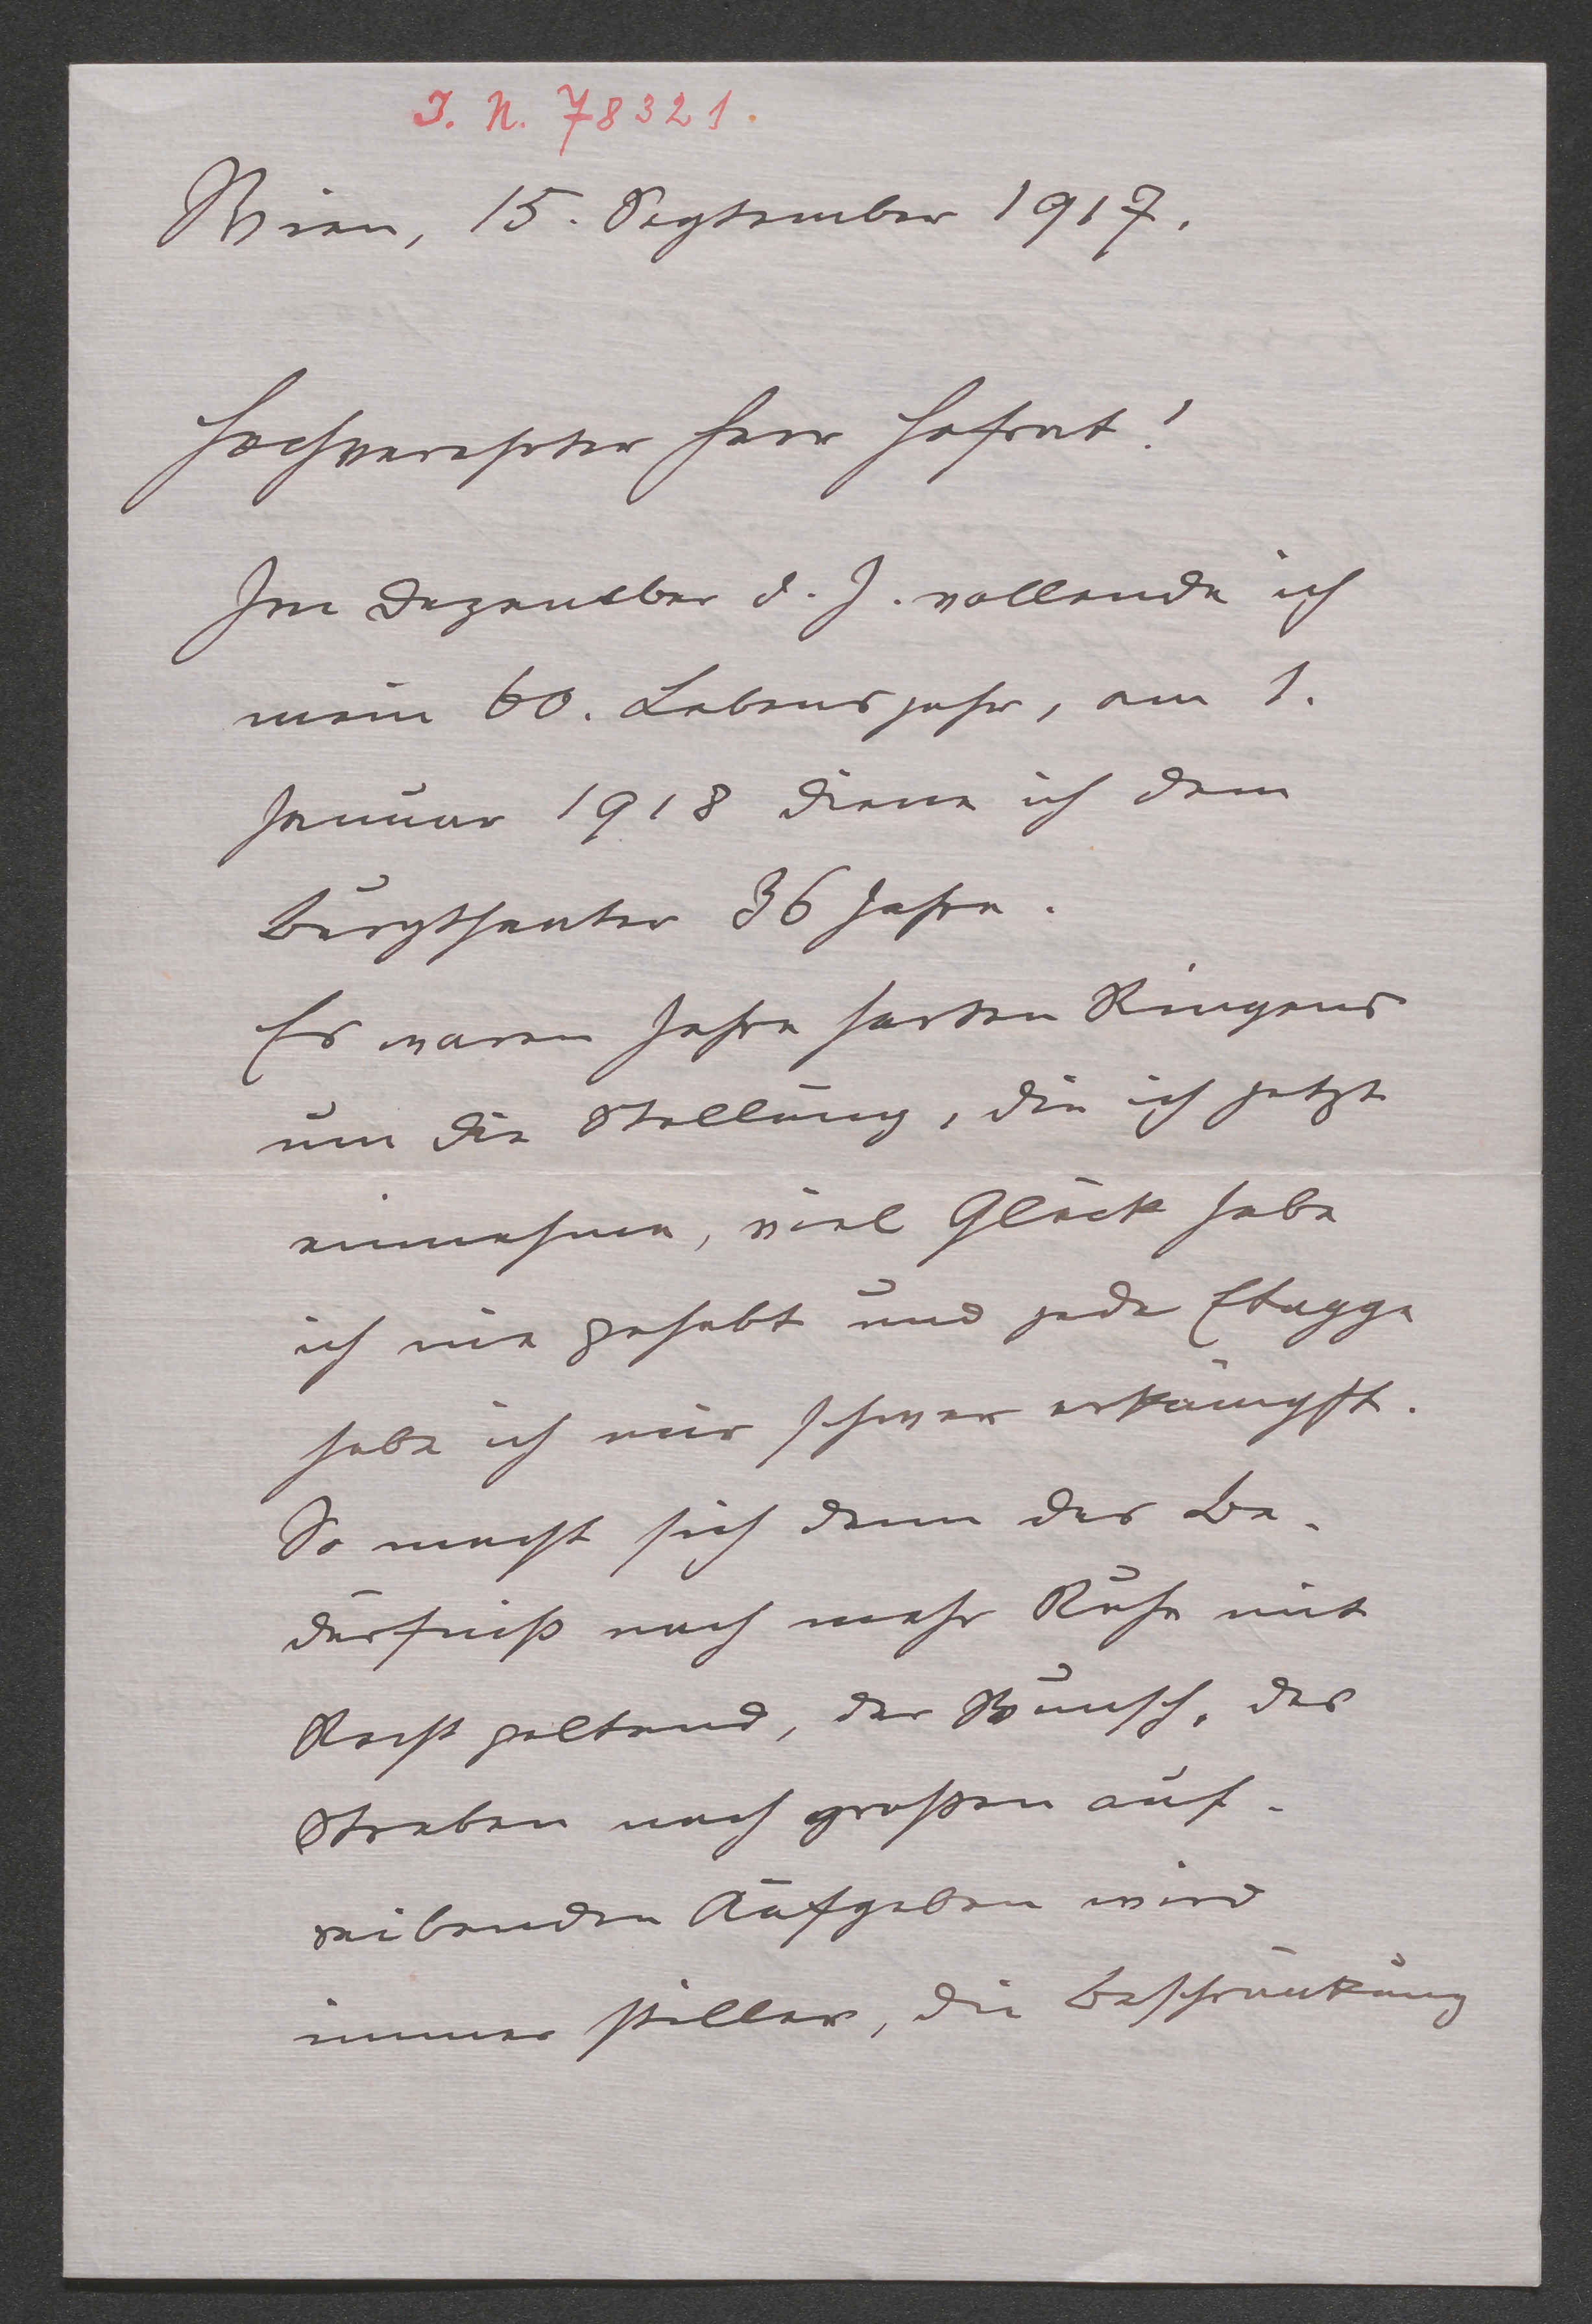 J. N. 78321.
Wien, 15. September 1917.
Hochverehrter Herr Hofrat!
Im Dezember d. J. vollende ich
mein 60. Lebensjahr, am 1.
Januar 1918 diene ich dem
Burgtheater 36 Jahre.
Es waren Jahre harten Ringens
um die Stellung, die ich jetzt
einnehme, viel Glück habe
ich nie gehabt und jede Etappe
habe ich mir schwer erkämpft.
So macht sich denn das Be-
dürfniß nach mehr Ruhe mit
Recht geltend, der Wunsch, das
Streben nach großen auf-
reibenden Aufgaben wird
immer stiller, die Beschränkung